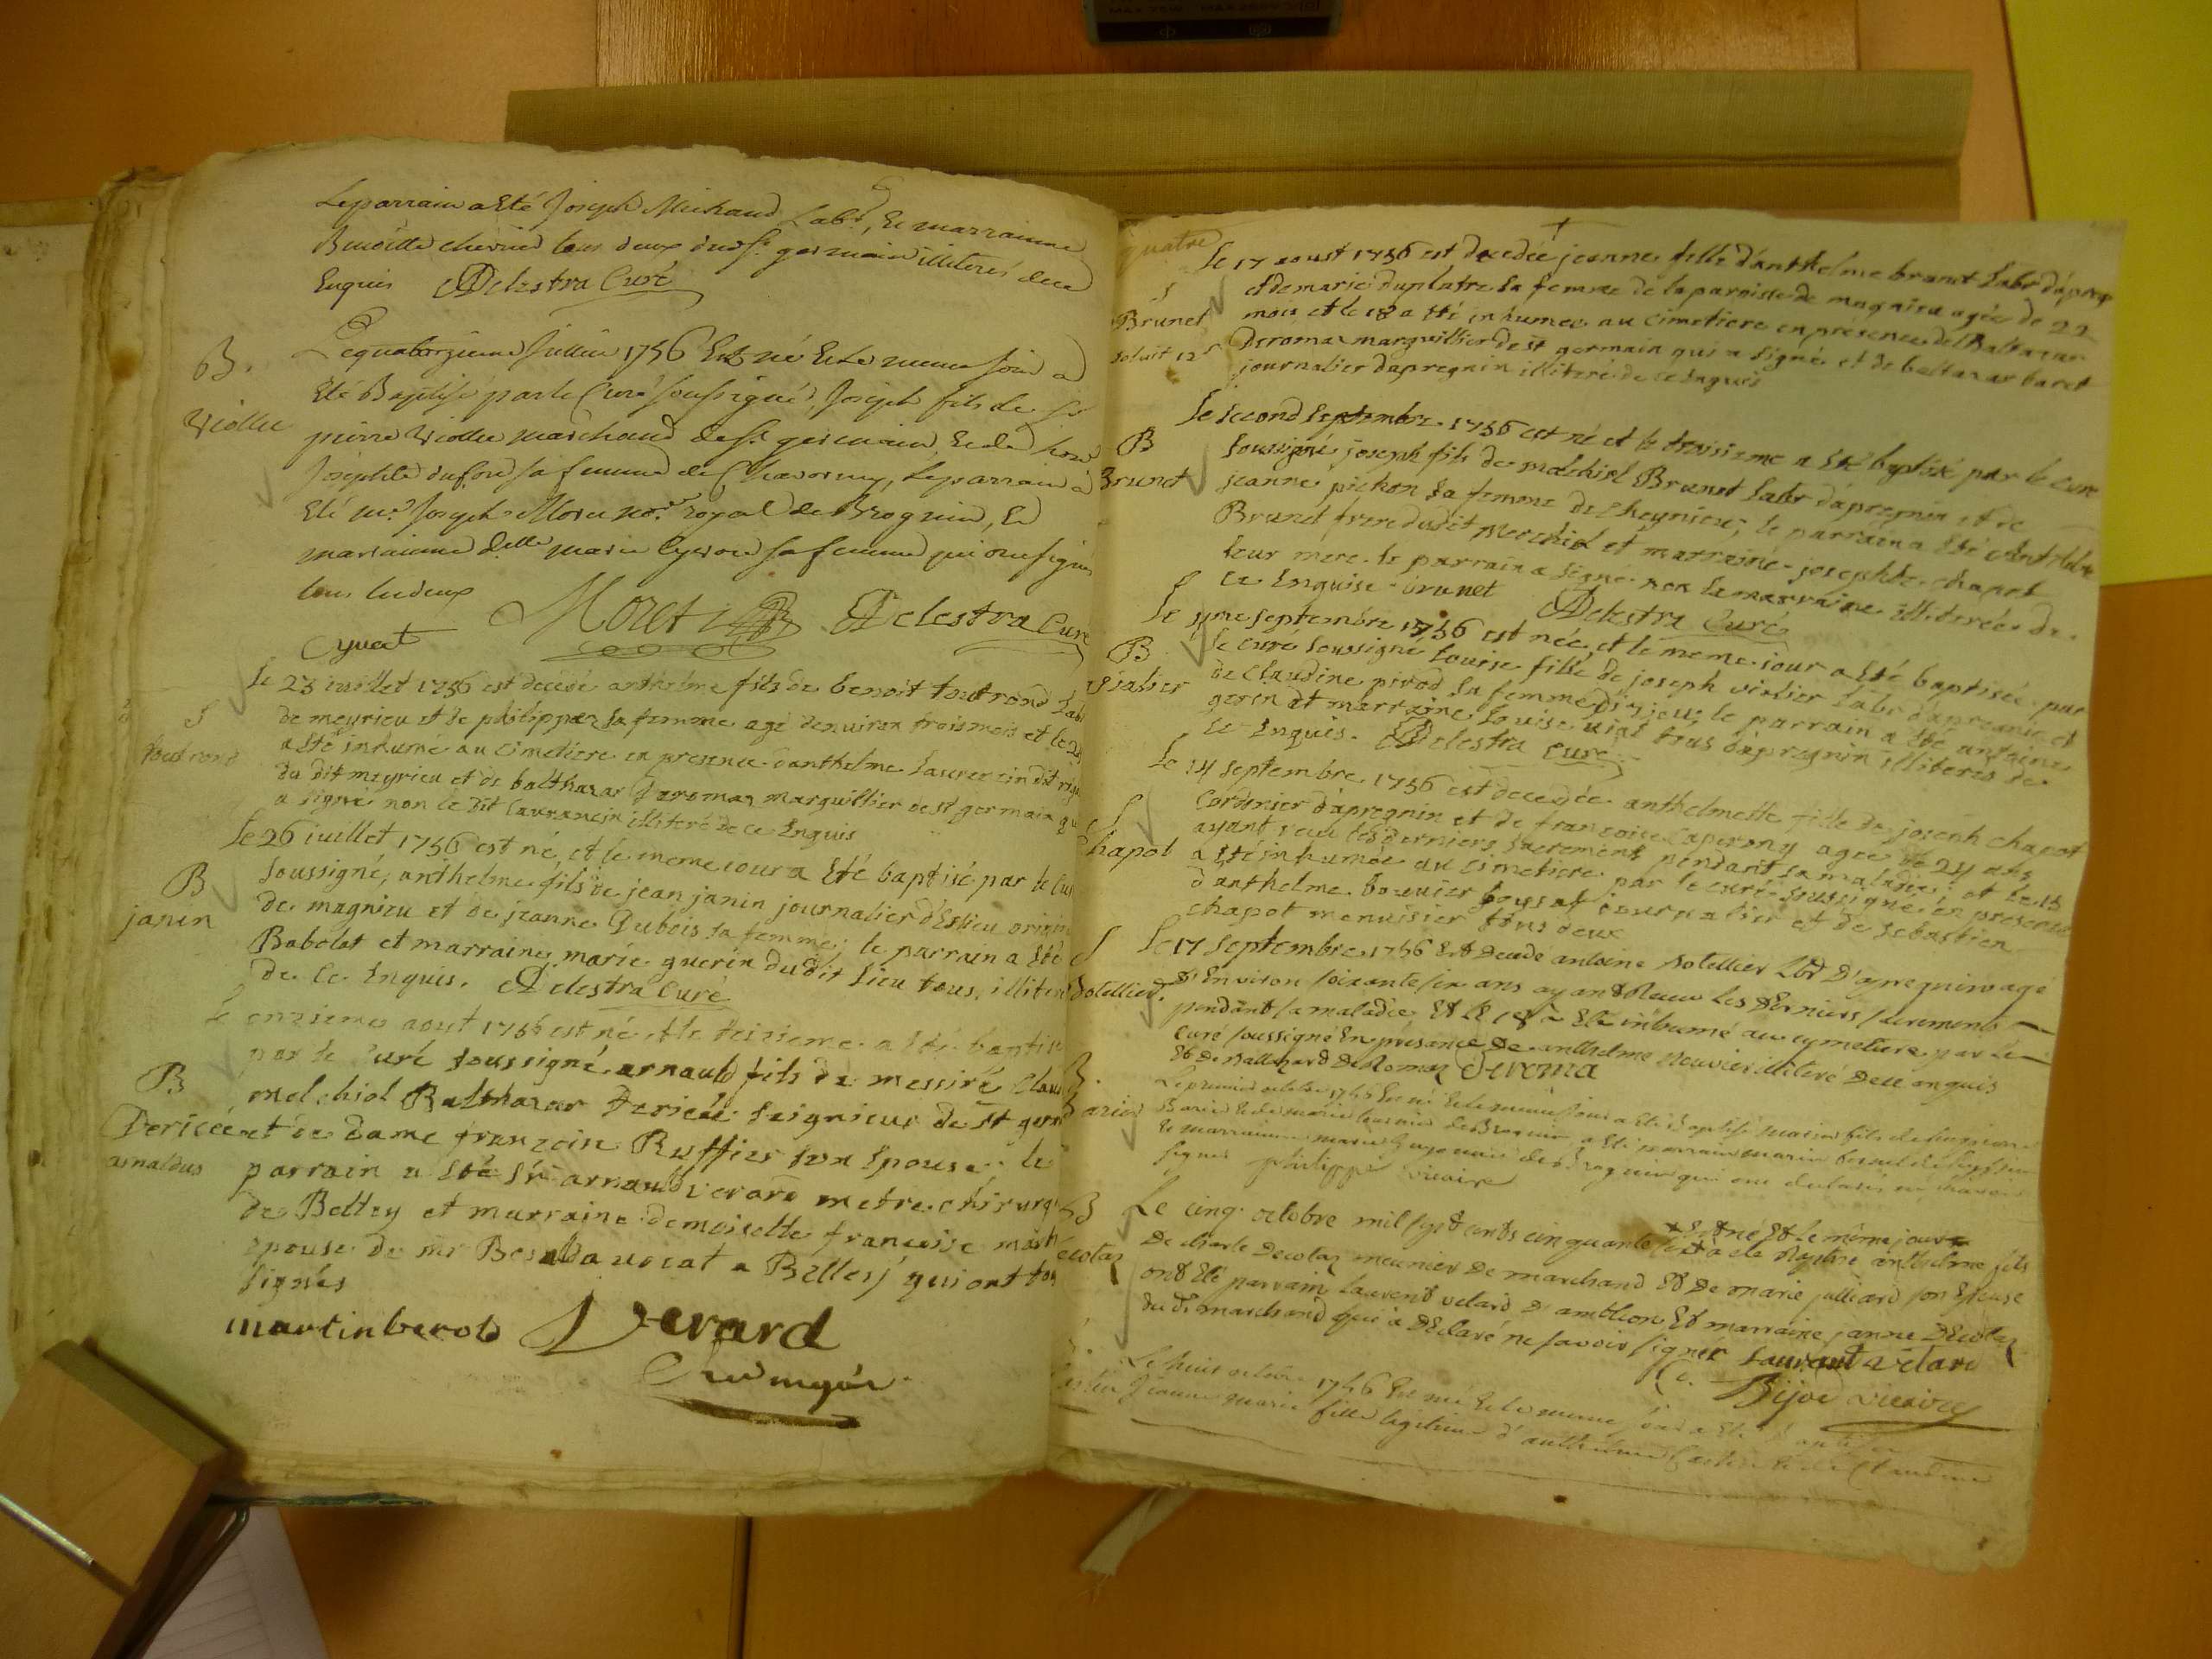 Le parrain a Eté Joseph Michaud Labr, Et marrainne
Benoitte chevrier tous deux de St germain illiterés de ce
Enquis ADelestra Curé
B.
Violler
Le quatorzieme Juillier 1756 Est né Et Le meme Jour a
Eté Baptisé par le Curé soussigné, Joseph fils de Sr
pierre Violler marchand de St germain, Et de
Josephte dufour sa femme de Chavorney, Le parrain a
Eté mre Joseph Moret nore royal de Brognin, Et
marrainne delle marie Cyvoct sa femme qui ont signés
tous les deux Moret ADelestra Curé
Cyvoct
S
toutrond
le 23 iuillet 1756 est decedé anthelme fils de benoit toutrond Lab
de meyrieu et de philippaz sa femme agé denuiron trois mois et le 24
a Eté inhumé au cimetiere en presence danthelme Laurencin dit
du dit meyrieu et de balthazar Deromaz marguillier de st germain qu
a signé non le dit Laurancin illiteré de ce Enquis
B
janin
le 26 iuillet 1756 est né et le meme iour a Eté baptisé par le Cur
soussigné, anthelme fils de jean janin journalier d'Eslieu origin
de magnieu et de jeanne Dubois sa femme; le parrain a Eté
Babolat et marraine marie guerin dudit lieu tous illiter
de ce Enquis. ADelestra Curé
B
Dericée
arnaldus
Le onzieme aoust 1756 est né et le treisieme a Eté baptisé
par le Curé soussigné arnauld fils de messire Claud
melchiol Balthazar Dericée seigneur de st germ
et de dame françoise Ruffier son Epouse; le
parrain a Eté Sr arnaud verard metre chirurg
de Belley et marraine demoiselle francoise mart
epouse de mr Berold avocat a Belley qui ont tou
signés
martin berold Verard
quatre
S
Brunet
Le 17 aoust 1756 est decedée jeanne fille d'anthelme brunet Labr d'apreg
et de marie duplatre sa femme de la paroisse de magnieu agée de 22
mois et le 18 a Eté inhumée au cimetiere en presence de Baltazar
Deromaz marguillier de st germain qui a signé et de baltazar baret
journalier dapregnin illiteré de ce Enquis
B
Brunet
Le second septembre 1756 est né et le troisieme a Eté baptisé par le curé
soussigné joseph fils de melchiol Brunet Labr d'apregnin et de
jeanne pichon sa femme de cheynieu; le parrain a Eté Anthelme
Brunet frere dudit Merchiol et marraine josephte chapot
leur mere. le parrain a signé non la marraine illiterée de
ce Enquise. brunet ADelestra Curé
B
vialier
Le septembre 1756 est née et le meme iour a Eté baptisée par
le curé soussigné Louise fille de joseph vialier Labr dapregnin et
de Claudine pirod sa femme le parrain a Eté antoine
gerin et marraine Louise tous dapregnin illiteres de
ce Enquis. ADelestra Curé
S
Chapot
Le 14 septembre 1756 est decedée anthelmette fille de joseph chapot
cordonier dapregnin et de francoise Caperony agée de 24 ans
ayant reçu les derniers sacrements pendant sa maladie; et le 15
a Eté inhumée au cimetiere par le curé soussigné en presence
d'anthelme bouvier journalier et de sebastien
chapot menuisier tous deux
S
Sotellier.
Le 17 septembre 1756 Est decede antoine Sotellier Lbr D'apregnin age
D'Environ soixante six ans ayant Receu Les derniers sacrements
pendant sa maladie Et le 18 a Ete inhumé au cymetiere par le
curé soussigné En presance De anthelme illiteré De ce enquis
Et De Balthazard DeRomaz Deroma
B.
Le premier octobre 1756 Est né Et le meme Jour a Eté Baptisé marin fils de
Et de marie de Brognin a Eté parrain marin
Et marrainne marie de Brognin qui ont declarés ne
signer philippe vicaire
B
Decotaz
Le cinq octobre mil sept cents cinquante six Est né Et le même jour
à ete Baptisé anthelme fils
De charle Decotaz meunier De marchand Et De marie julliard son Epouse
ont Eté parrain laurent velard D'ambleon Et marraine janne Decotaz
du dt marchand qui à Declaré ne savoir signer Laurant velard
Bijod vicaire
Le huit octobre 1756 Est né Et le meme jour a Eté
Jeanne marie fille legitime d'anthelme